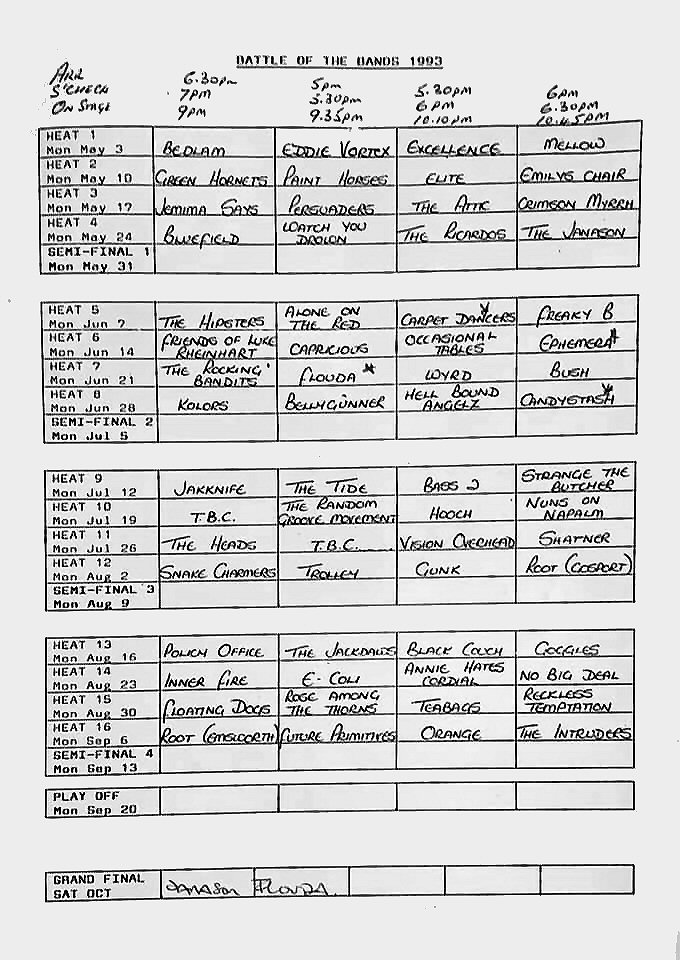 BATTLE OF THE BANDS 1993
ARR 6.30pm 5pm 5.30pm 6pm
S'CHECK 7pm 5.30pm 6pm 6.30pm
ON STAGE 9pm 9.35pm 10.10pm 10.45pm
HEAT 1
Mon May 3 BEDLAM EDDIE VORTEX EXCELLENCE MELLOW
HEAT 2
Mon May 10 GREEN HORNETS PAINT HORSES ELITE EMILYS CHAIR
HEAT 3
Mon May 17 JEMIMA SAYS PERSUADERS THE ATTIC CRIMSON MYRRH
HEAT 4 WATCH YOU
Mon May 24 BLUEFIELD DROWN THE RICARDOS THE JANASON
SEMI-FINAL 1
Mon May 31
HEAT 5 ALONE ON
Mon Jun 7 THE HIPSTERS THE RED CARPET DANCERS FREAKY B
HEAT 6 FRIENDS OF LUKE OCCASIONAL
Mon Jun 14 RHEINHART CAPRICIOUS TABLES EPHEMERA*
HEAT 7 THE ROCKING
Mon Jun 21 BANDITS FLOUDA* WYRD BUSH
HEAT 8 HELL BOUND
Mon Jun 28 KOLORS BELLYGUNNER ANGELZ CANDYSTASH
SEMI-FINAL 2
Mon Jul 5
HEAT 9 STRANGE THE
Mon Jul 12 JAKKNIFE THE TIDE BASS 2 BUTCHER
HEAT 10 THE RANDOM NUNS ON
Mon Jul 19 T.B.C. GROOVE MOVEMENT HOOCH NAPALM
HEAT 11
Mon Jul 26 THE HEADS T.B.C. VISION OVERHEAD SHATNER
HEAT 12
Mon Aug 2 SNAKE CHARMERS TROLLEY GUNK ROOT (GOSPORT)
SEMI-FINAL 3
Mon Aug 9
HEAT 13
Mon Aug 16 POLICY OFFICE THE JACKDAWS BLACK COUCH GOGGLES
HEAT 14 ANNIE HATES
Mon Aug 23 INNER FIRE E-COLI CORDIAL NO BIG DEAL
HEAT 15 ROSE AMONG RECKLESS
Mon Aug 30 FLOATING DOGS THE THORNS TEABAGS TEMPTATION
HEAT 16
Mon Sep 6 ROOT (EMSWORTH) FUTURE PRIMITIVES ORANGE THE INTRUDERS
SEMI-FINAL 4
Mon Sep 13
PLAY OFF
Mon Sep 20
GRAND FINAL
SAT OCT JANASON FLOUDA.